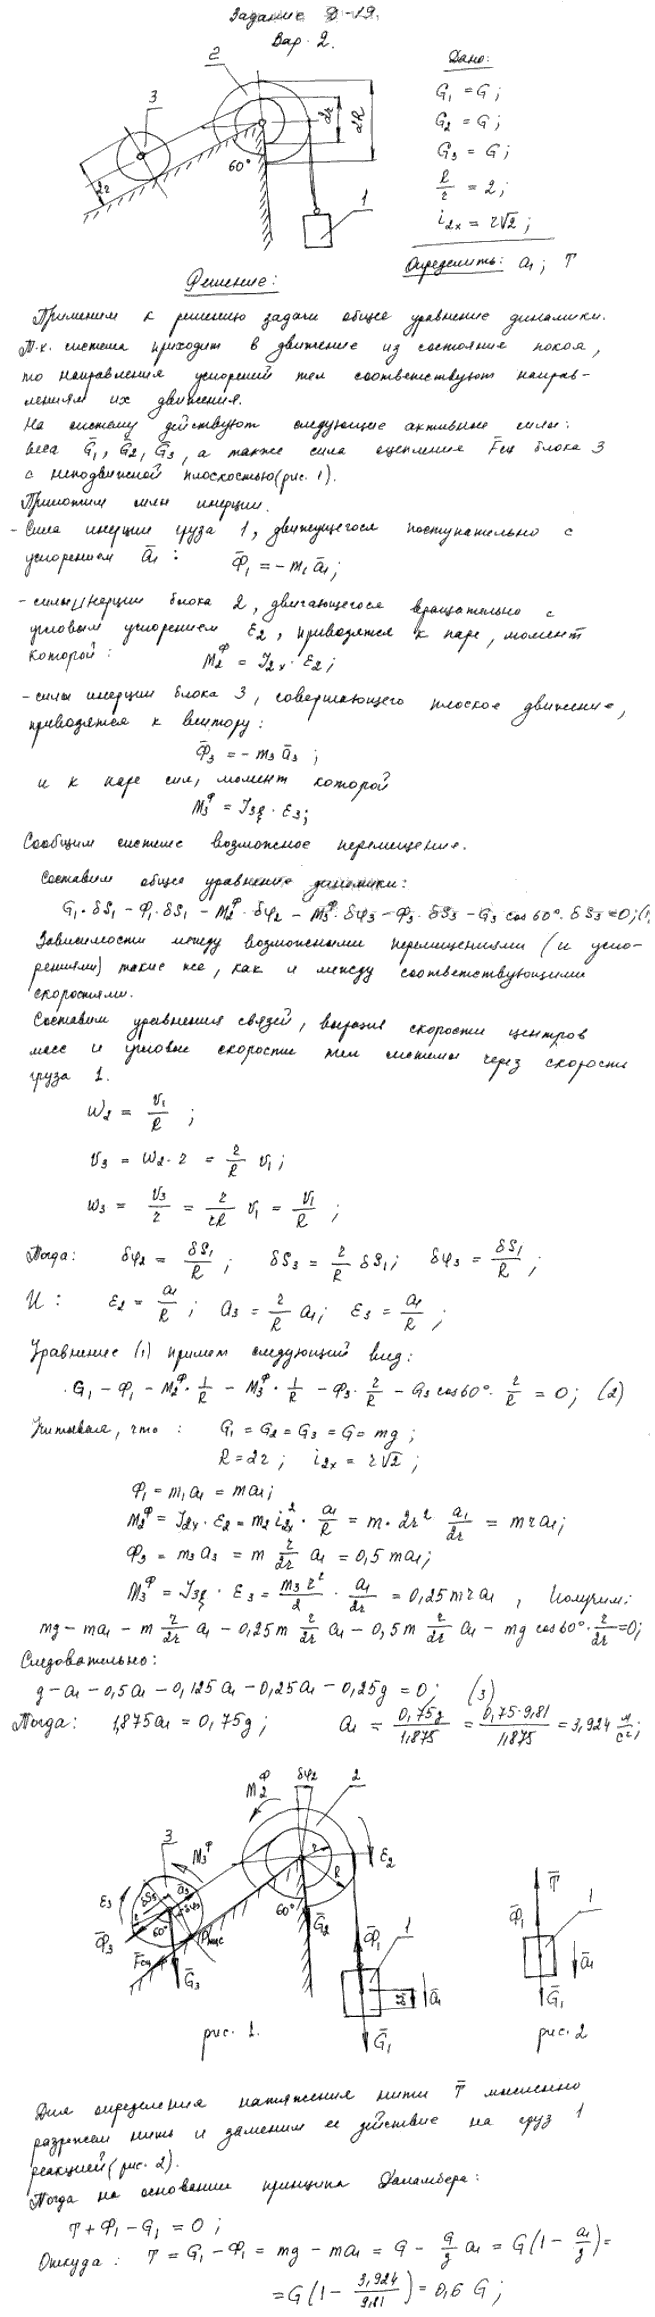 Задание Д-19.
Вар. 2.
Дано:
G₁ = G;
G₂ = G;
G₃ = G;
R/r = 2;
i₂ₓ = r√2;
Определить: a₁; T
2
3
2r
60°
2r
2R
1
Решение:
Применим к решению задачи общее уравнение динамики.
Т.к. система приходит в движение из состояние покоя,
то направления ускорений тел соответствуют направ-
лениям их движения.
На систему действуют следующие активные силы:
веса G̅₁, G̅₂, G̅₃, а также сила сцепления F̅сц блока 3
с неподвижной плоскостью (рис. 1).
Приложим силы инерции.
- Сила инерции груза 1, движущегося поступательно с
ускорением a̅₁: Φ̅₁ = - m₁ a̅₁;
- силы инерции блока 2, двигающегося вращательно с
угловым ускорением ε₂, приводятся к паре, момент
которой: M₂ᶲ = J₂ₓ · ε₂;
- силы инерции блока 3, совершающего плоское движение,
приводятся к вектору:
Φ̅₃ = - m₃ a̅₃;
и к паре сил, момент которой
M₃ᶲ = J₃ξ · ε₃;
Сообщим системе возможное перемещение.
Составим общее уравнение динамики:
G₁·δS₁ - Φ₁·δS₁ - M₂ᶲ·δφ₂ - M₃ᶲ·δφ₃ - Φ₃·δS₃ - G₃ cos 60°·δS₃ = 0; (1)
Зависимости между возможными перемещениями (и уско-
рениями) такие же, как и между соответствующими
скоростями.
Составим уравнения связей, выразив скорости центров
масс и угловые скорости тел системы через скорость
груза 1.
ω₂ = V₁/R;
V₃ = ω₂·r = r/R V₁;
ω₃ = V₃/r = r/rR V₁ = V₁/R;
Тогда: δφ₂ = δS₁/R; δS₃ = r/R δS₁; δφ₃ = δS₁/R;
И: ε₂ = a₁/R; a₃ = r/R a₁; ε₃ = a₁/R;
Уравнение (1) примет следующий вид:
G₁ - Φ₁ - M₂ᶲ·1/R - M₃ᶲ·1/R - Φ₃·r/R - G₃ cos 60°·r/R = 0; (2)
Учитывая, что: G₁ = G₂ = G₃ = G = mg;
R = 2r; i₂ₓ = r√2;
Φ₁ = m₁a₁ = ma₁;
M₂ᶲ = J₂ₓ·ε₂ = m₂ i₂ₓ²·a₁/R = m·2r² a₁/2r = mra₁;
Φ₃ = m₃a₃ = m r/2r a₁ = 0,5 ma₁;
M₃ᶲ = J₃ξ·ε₃ = m₃r²/2 · a₁/2r = 0,25 mra₁, получим:
mg - ma₁ - m r/2r a₁ - 0,25m r/2r a₁ - 0,5m r/2r a₁ - mg cos 60°·r/2r = 0;
Следовательно:
g - a₁ - 0,5a₁ - 0,125a₁ - 0,25a₁ - 0,25g = 0; (3)
Тогда: 1,875a₁ = 0,75g; a₁ = 0,75g/1,875 = 0,75·9,81/1,875 = 3,924 м/с²;
M₂ᶲ
δφ₂
2
3
M₃ᶲ
r
R
ε₂
ε₃
δS₃
a̅₃
δφ₃
60°
Φ̅₃
F̅сц
G̅₃
60°
G̅₂
Φ̅₁
1
a̅₁
G̅₁
рис. 1.
T̅
Φ̅₁
1
a̅₁
G̅₁
рис. 2
Для определения натяжения нити T̅ мысленно
разрежем нить и заменим ее действие на груз 1
реакцией (рис. 2).
Тогда на основании принципа Даламбера:
T + Φ₁ - G₁ = 0;
Откуда: T = G₁ - Φ₁ = mg - ma₁ = G - G/g a₁ = G(1 - a₁/g) =
= G(1 - 3,924/9,81) = 0,6 G;